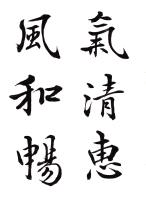 氣清恵
風和暢